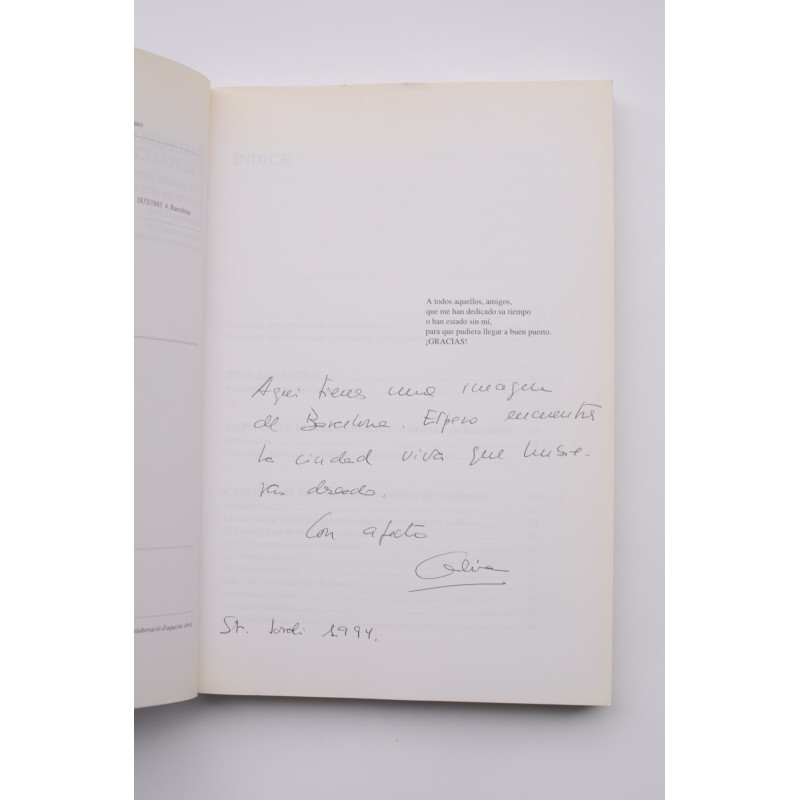 A todos aquellos, amigos,
que me han dedicado su tiempo
o han estado sin mí,
para que pudiera llegar a buen puerto.
¡GRACIAS!
Aquí tienes una imagen
de Barcelona. Espero encuentres
la ciudad viva que hubie-
ras deseado.
Con afecto
St. Jordi 1994.
ÍNDICE
A Barcelona
elaboració d'aquesta obra